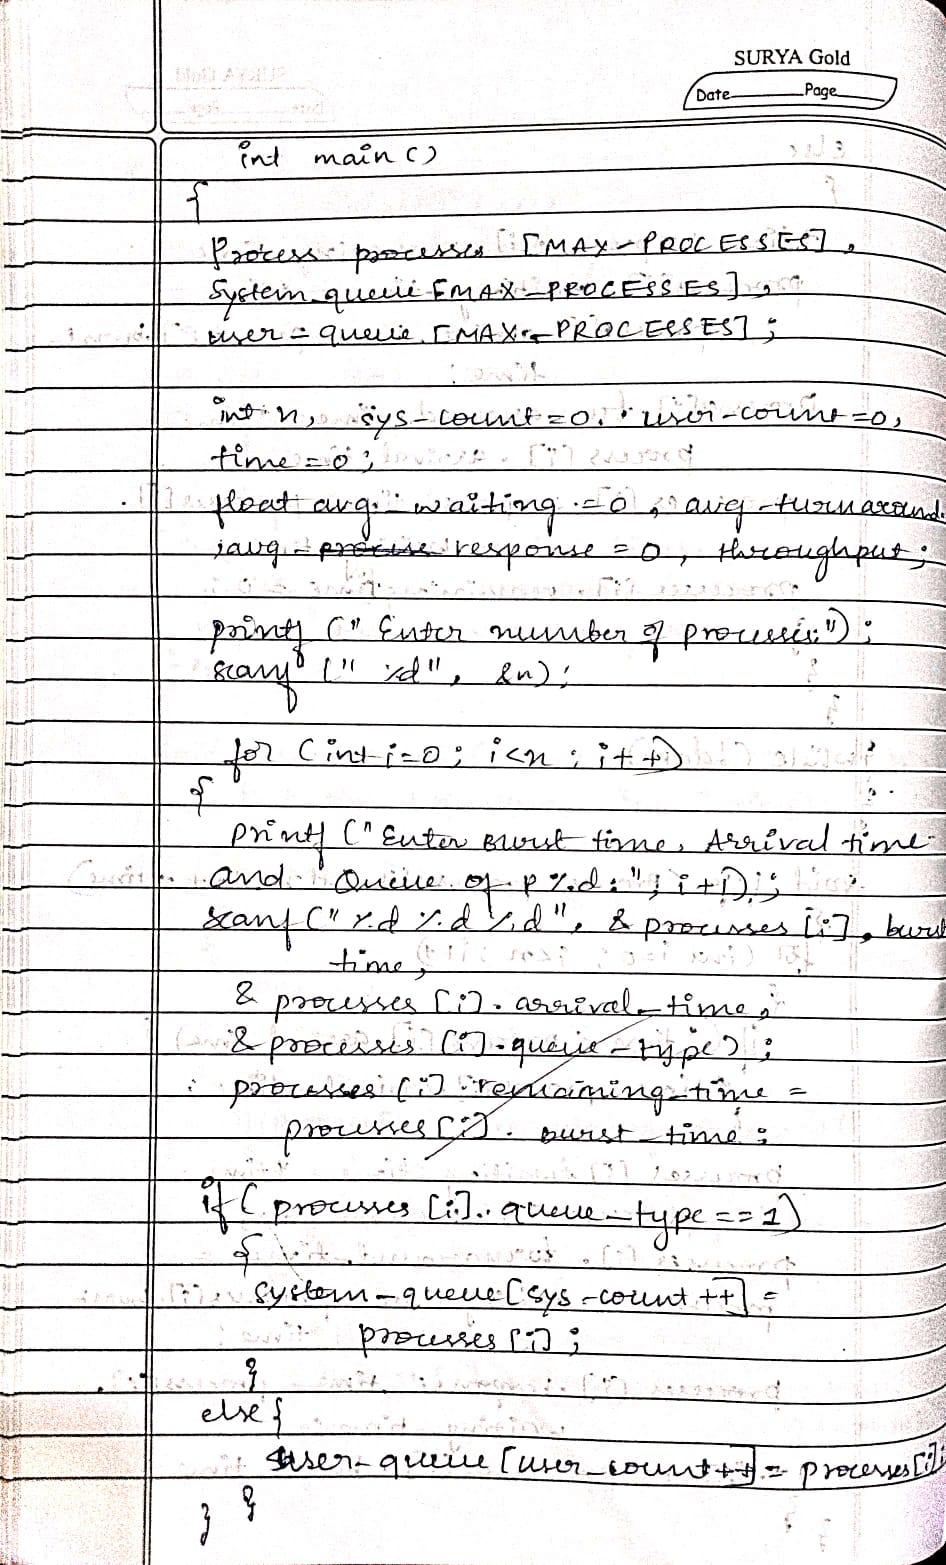 SURYA Gold
Date Page
int main ()
{
Process processes [MAX_PROCESSES],
System_queue [MAX_PROCESSES],
user_queue [MAX_PROCESSES];
int n, sys_count=0, user_count=0,
time=0;
float avg_waiting=0, avg_turnaround
,avg_response=0, throughput;
printf ("Enter number of processes:");
scanf ("%d", &n);
for (int i=0; i<n; i++)
{
printf ("Enter Burst time, Arrival time
and Queue of P%d:", i+1);
scanf ("%d %d %d", & processes [i], burst
time,
& processes [i]. arrival_time,
& processes [i].queue_type);
processes [i].remaining_time =
processes [i]. burst_time;
if ( processes [i]. queue_type==1)
{
system_queue [sys_count++] =
processes [i];
}
else {
user_queue [user_count++] = processes[i];
}
}